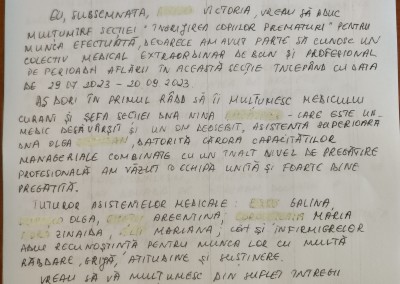 EU, SUBSEMNATA, VICTORIA, VREAU SĂ ADUC
MULȚUMIRE SECȚIEI "ÎNGRIJIREA COPIILOR PREMATURI" PENTRU
MUNCA EFECTUATĂ, DEOARECE AM AVUT PARTE SĂ CUNOSC UN
COLECTIV MEDICAL EXTRAORDINAR DE BUN ȘI PROFESIONAL
PE PERIOADA AFLĂRII ÎN ACEASTĂ SECȚIE ÎNCEPÂND CU DATA
DE 29 07 2023 - 20 09 2023.
AȘ DORI ÎN PRIMUL RÂND SĂ ÎI MULȚUMESC MEDICULUI
CURANT ȘI ȘEFA SECȚIEI DNA NINA - CARE ESTE UN
MEDIC DESĂVÂRȘIT ȘI UN OM DEOSEBIT, ASISTENTA SUPERIOARĂ
DNA OLGA , DATORITĂ CĂRORA CAPACITĂȚILOR
MANAGERIALE COMBINATE CU UN ÎNALT NIVEL DE PREGĂTIRE
PROFESIONALĂ AM VĂZUT O ECHIPĂ UNITĂ ȘI FOARTE BINE
PREGĂTITĂ.
TUTUROR ASISTENTELOR MEDICALE: GALINA,
OLGA, ARGENTINA, MARIA
ZINAIDA, MARIANA; CÂT ȘI INFIRMIERELOR
ADUC RECUNOȘTINȚĂ PENTRU MUNCA LOR CU MULTĂ
RĂBDARE, GRIJĂ, ATITUDINE ȘI SUSȚINERE.
VREAU SĂ VĂ MULȚUMESC DIN SUFLET ÎNTREGII